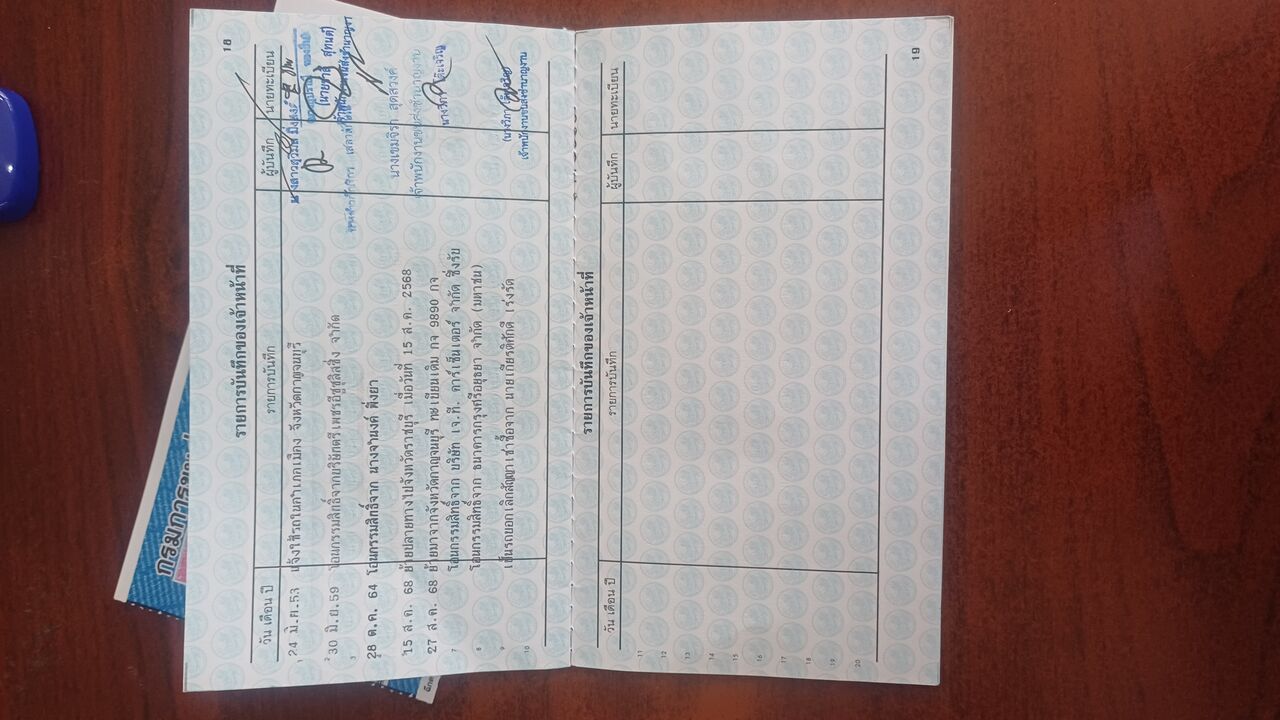 18
รายการบันทึกของเจ้าหน้าที่
วัน เดือน ปี รายการบันทึก ผู้บันทึก นายทะเบียน
1 24 มิ.ย.53 แจ้งใช้รถในอำเภอเมือง จังหวัดกาญจนบุรี
2 30 มิ.ย.59 โอนกรรมสิทธิ์จากบริษัทตรีเพชรอีซูซุลิสซิ่ง จำกัด
3
28 ต.ค. 64 โอนกรรมสิทธิ์จาก นางจำนงค์ พึ่งยา
15 ส.ค. 68 ย้ายปลายทางไปจังหวัดราชบุรี เมื่อวันที่ 15 ส.ค. 2568
27 ส.ค. 68 ย้ายมาจากจังหวัดกาญจนบุรี ทะเบียนเดิม กจ 9890 กจ
7 โอนกรรมสิทธิ์จาก บริษัท เจ.ที. คาร์เซ็นเตอร์ จำกัด ซึ่งรับ
8 โอนกรรมสิทธิ์จาก ธนาคารกรุงศรีอยุธยา จำกัด (มหาชน)
9 เป็นรถบอกเลิกสัญญาเช่าซื้อจาก นายเกียรติศักดิ์ เร่งรัด
10
นางเขมจิรา สุดสวงค์
เจ้าพนักงานขนส่งชำนาญงาน
เจ้าพนักงานขนส่งชำนาญงาน
รายการบันทึกของเจ้าหน้าที่
วัน เดือน ปี รายการบันทึก ผู้บันทึก นายทะเบียน
11
12
13
14
15
16
17
18
19
20
19